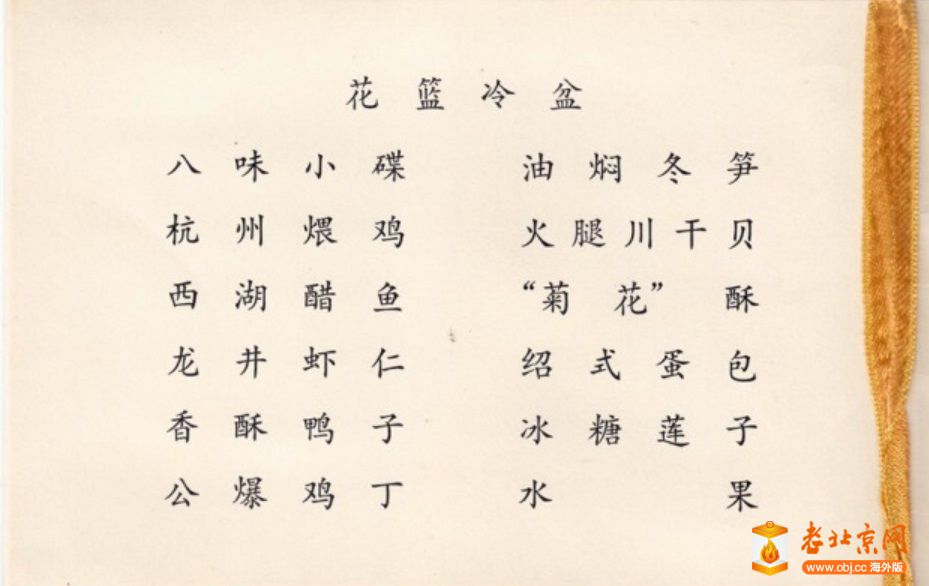 花篮冷盆
八味小碟
杭州煨鸡
西湖醋鱼
龙井虾仁
香酥鸭子
公爆鸡丁
油焖冬笋
火腿川干贝
“菊花”酥
绍式蛋包
冰糖莲子
水果
老北京网
www.obj.cc 海外版